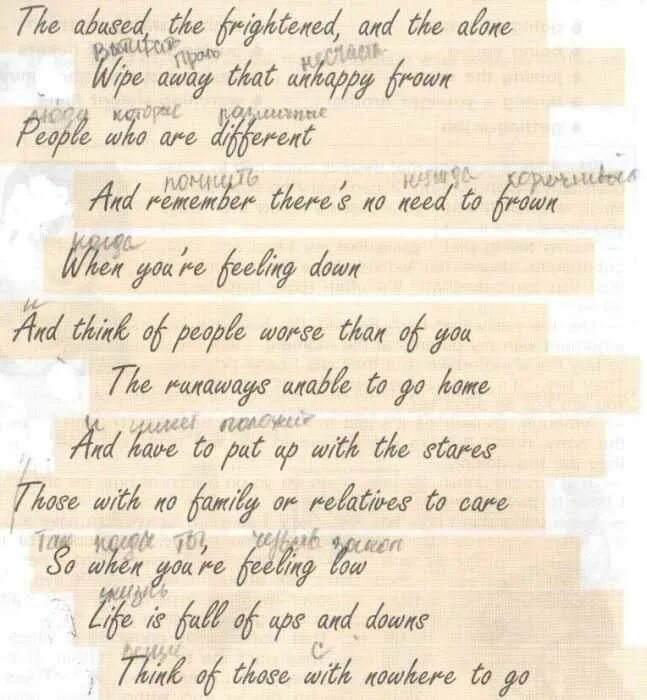 The abused, the frightened, and the alone
вытирать прочь несчасть
Wipe away that unhappy frown
люди которые различные
People who are different
помнить нужда
And remember there's no need to frown
когда
When you're feeling down
и
And think of people worse than of you
The runaways unable to go home
и имеет положить
And have to put up with the stares
Those with no family or relatives to care
Так когда ты закон
So when you're feeling low
жизнь
Life is full of ups and downs
с
Think of those with nowhere to go